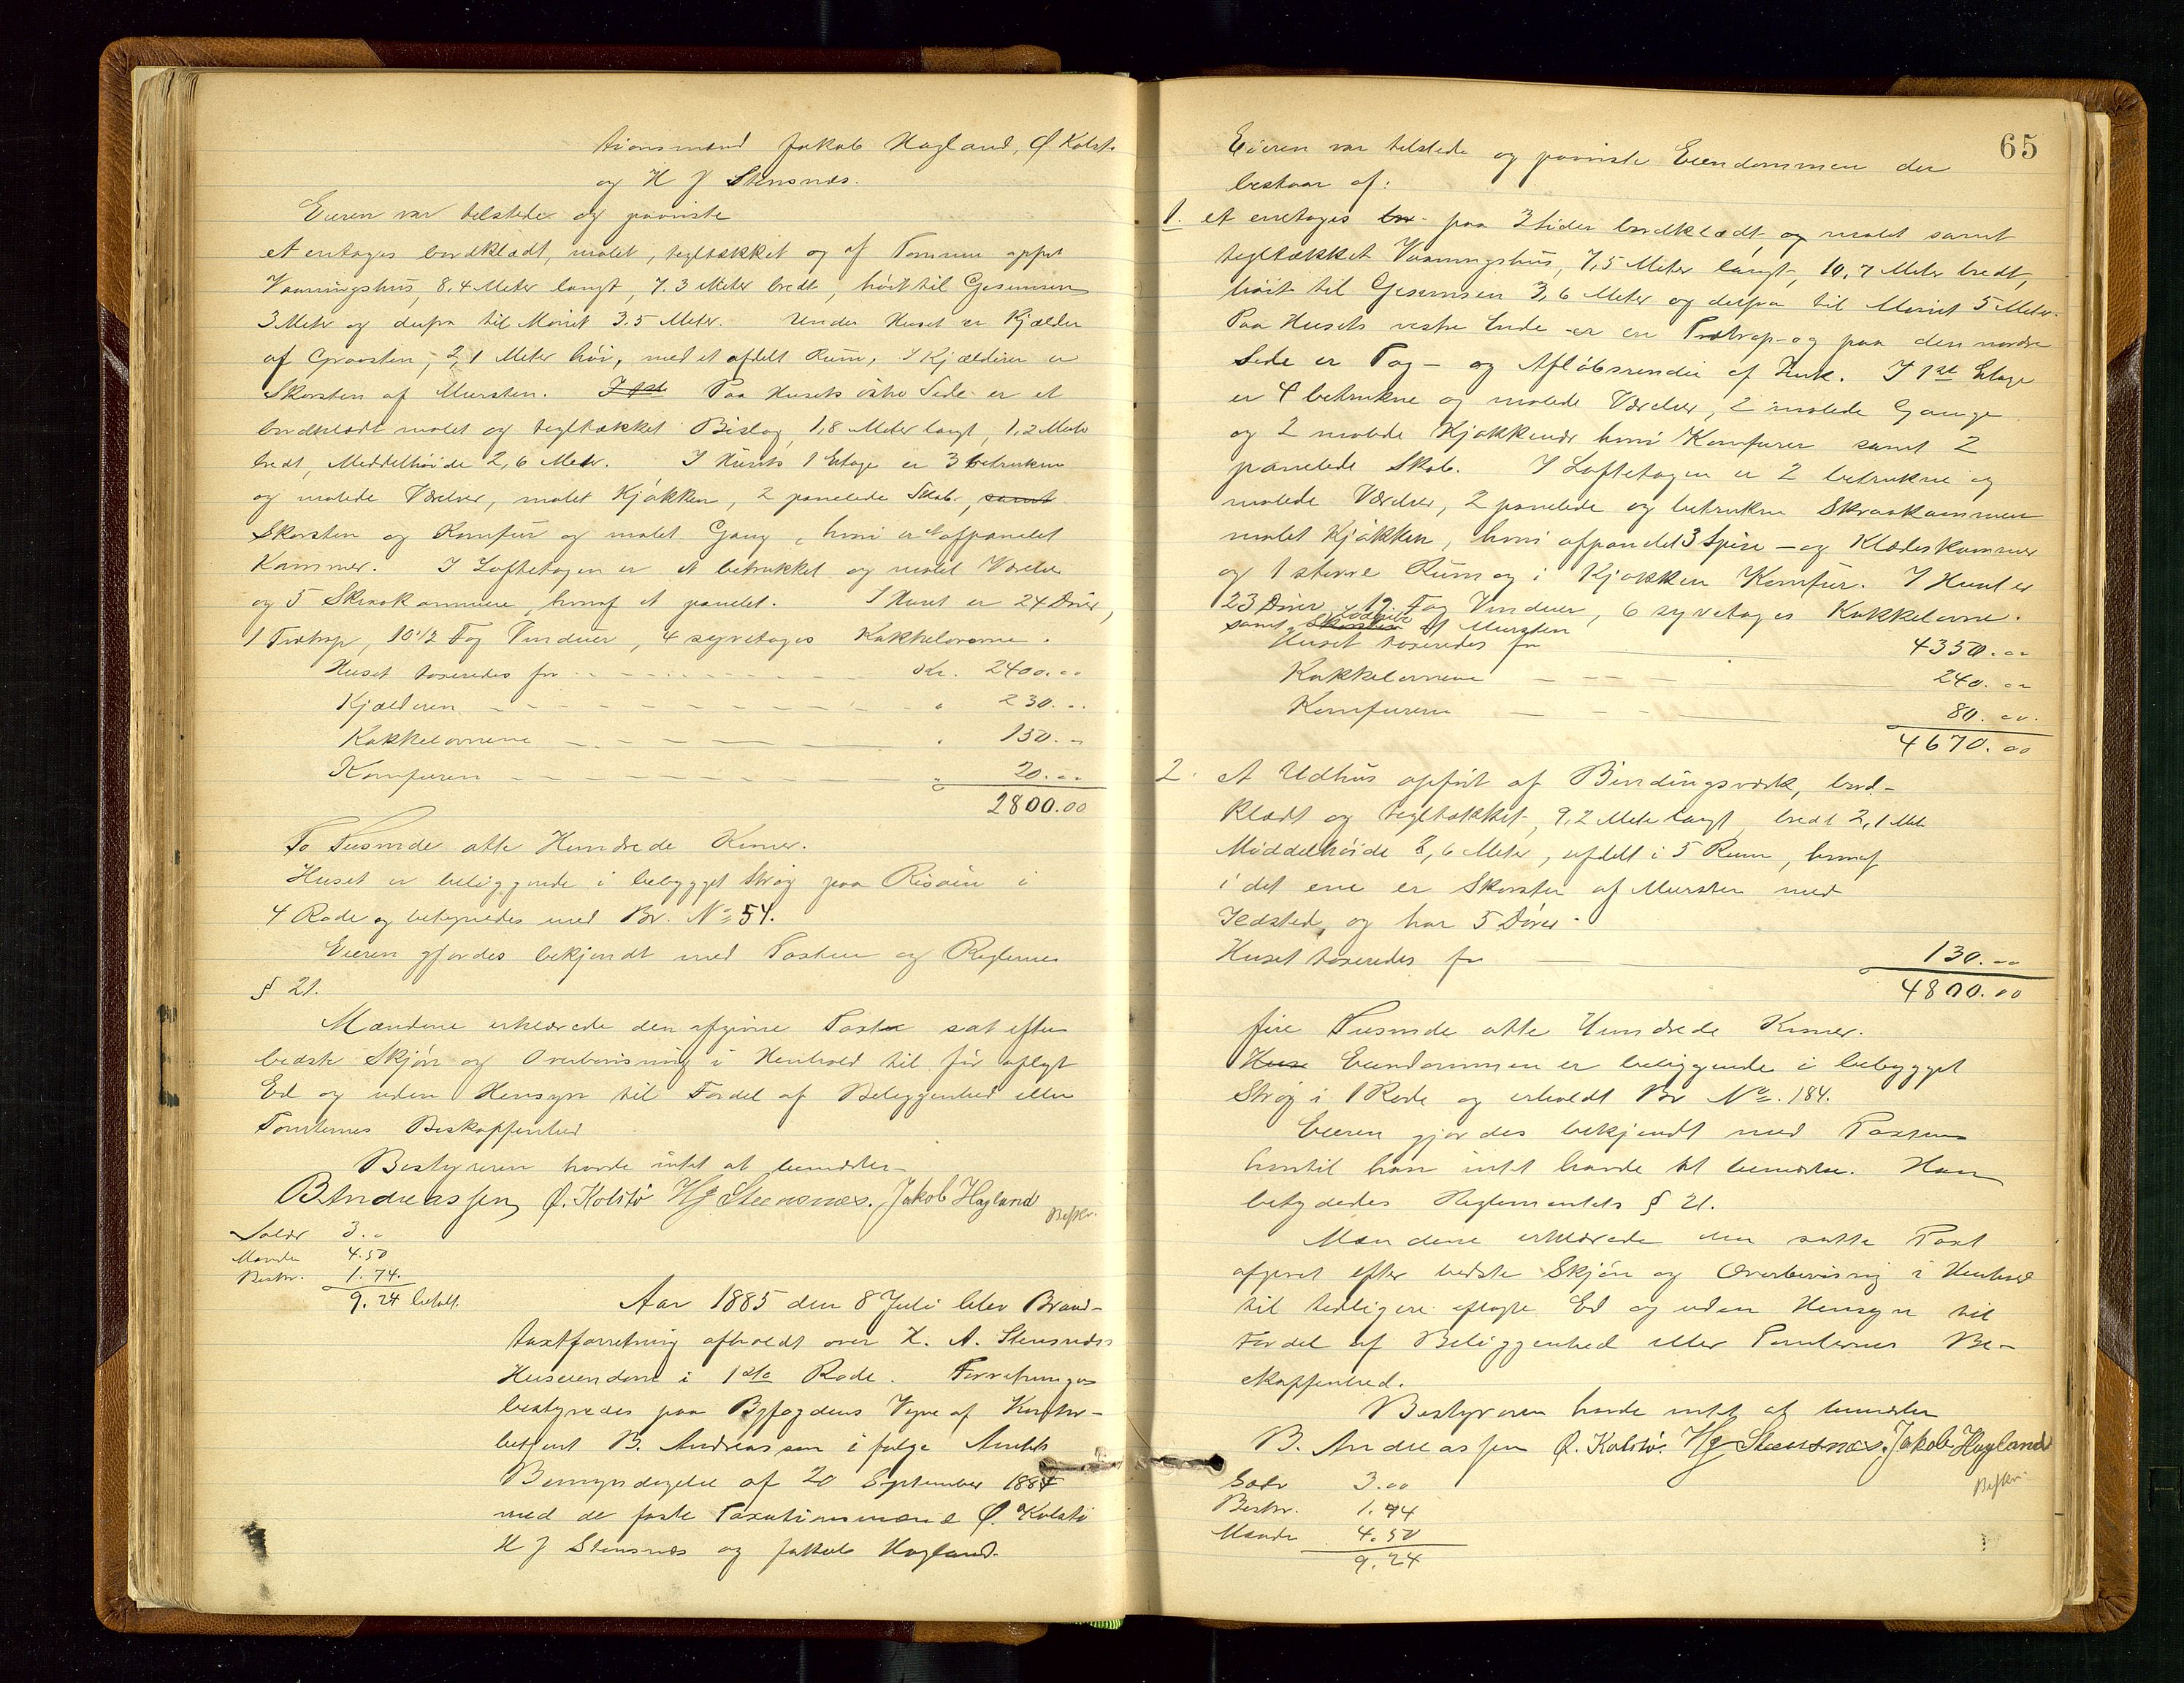 tionsmænd Jakob Hagland, Ø Kolstø
og H J Stensnæs.
Eieren var tilstede og paaviste
et entages bordklædt, malet, tegltækket og af Tømmer opført
Vaaningshus, 8,4 Meter langt, 7.3 Meter bredt, høit til Gesimsen
3 Meter og derfra til Mønet 3.5 Meter. Under Huset er Kjælder
af Graasten, 2,1 Meter høi, med et afdelt Rum. I Kjælderen er
Skorsten af Mursten. Paa Husets østre Side er et
bordklædt malet og tegltækket Bislag, 1,8 Meter langt, 1,2 Meter
bredt, Middelhøide 2,6 Meter. I Husets 1 Etage er 3 betrukne
og malede Værelser, malet Kjøkken, 2 panelede Skab, samt
Skorsten og Komfur og malet Gang, hvori er afpanelet
Kammer. I Loftetagen er et betrukket og malet Værelse
og 5 Skraakammere, hvoraf et panelet. I Huset er 24 Døre,
1 Trætrap, 10 1/2 Fag Vinduer, 4 syvetages Kakkelovne.
Huset taxeredes for Kr. 2400.00
Kjælderen " 230. "
Kakkelovnene " 150. "
Komfuren " 20.00
2800.00
To Tusinde otte Hundrede Kroner.
Huset er beliggende i bebygget Strøg paa Risøen i
4 Rode og betegnedes med Br. No 54.
Eieren gjordes bekjendt med Taxten og Reglernes
§ 21.
Mændene erklærede den afgivne Taxt sat efter
bedste Skjøn og Overbevisning i Henhold til før aflagt
Ed og uden Hensyn til Fordel af Beliggenhed eller
Tomternes Beskaffenhed
Bestyreren havde intet at bemærke.
B Andreassen Ø. Kolstø HJ Steensnæs. Jakob Hagland
Salær 3. "
Mænde 4.50
Bestyr. 1.74.
9.24 betalt.
Aar 1885 den 8 Juli blev Brand-
taxtforretning afholdt over H. A. Stensnæs
Huseiendom i 1ste Rode. Forretningen
bestyredes paa Byfogdens Vegne af Kontor-
betjent B. Andreassen ifølge Amtets
Bemyndigelse af 20 September 1884
med de faste Taxationsmænd Ø. Kolstø
H J Stensnæs og Jakob Hagland.
65
Eieren var tilstede og paaviste Eiendommen der
bestaar af:
1. et entages paa 3 Sider bordklædt, og malet samt
tegltækket Vaaningshus, 7,5 Meter langt, 10,7 Meter bredt,
høit til Gesimsen 3,6 Meter og derfra til Mønet 5 Meter.
Paa Husets vestre Ende er en Trætrap og paa den nordre
Side er Tag- og Afløbsrender af Zink. I 1ste Etage
er 4 betrukne og malede Værelser, 2 malede Gange
og 2 malede Kjøkkener hvori Komfurer samt 2
panelede Skab. I Loftetagen er 2 betrukne og
malede Værelser, 2 panelede og betrukne Skraakammere
malet Kjøkken, hvori afpanelet 3 Spise- og Klædeskammer
og 1 større Rum og i Kjøkken Komfur. I Huset er
23 Døre, 19 Fag Vinduer, 6 syvetages Kakkelovne.
samt Skorsten af Mursten
Huset taxeredes for 4350.00
Kakkelovnene 240.00
Komfurene 80.00.
4670.00
2. et Udhus opført af Bindingsværk, bord-
klædt og tegltækket, 9,2 Meter langt, bredt 2,1 Meter
Middelhøide 2,6 Meter, afdelt i 5 Rum, hvoraf
i det ene er Skorsten af Mursten med
Ildsted, og har 5 Døre.
Huset taxeredes for 130.00
4800.00
fire Tusinde otte Hundrede Kroner.
Huse Eiendommen er beliggende i bebygget
Strøg i 1 Rode og erholdt Br No. 184.
Eieren gjordes bekjendt med Taxten
hvortil han intet havde at bemærke. Han
betydedes Reglementets § 21.
Mændene erklærede den satte Taxt
afgivet efter bedste Skjøn og Overbevisning i Henhold
til tidligere aflagte Ed og uden Hensyn til
Fordel af Beliggenhed eller Tomternes Be-
skaffenhed.
Bestyreren havde intet at bemærke
B. Andreassen Ø. Kolstø. HJ Steensnæs. Jakob Hagland
Salær 3.00
Bestyr. 1.74
Mænde 4.50
9.24